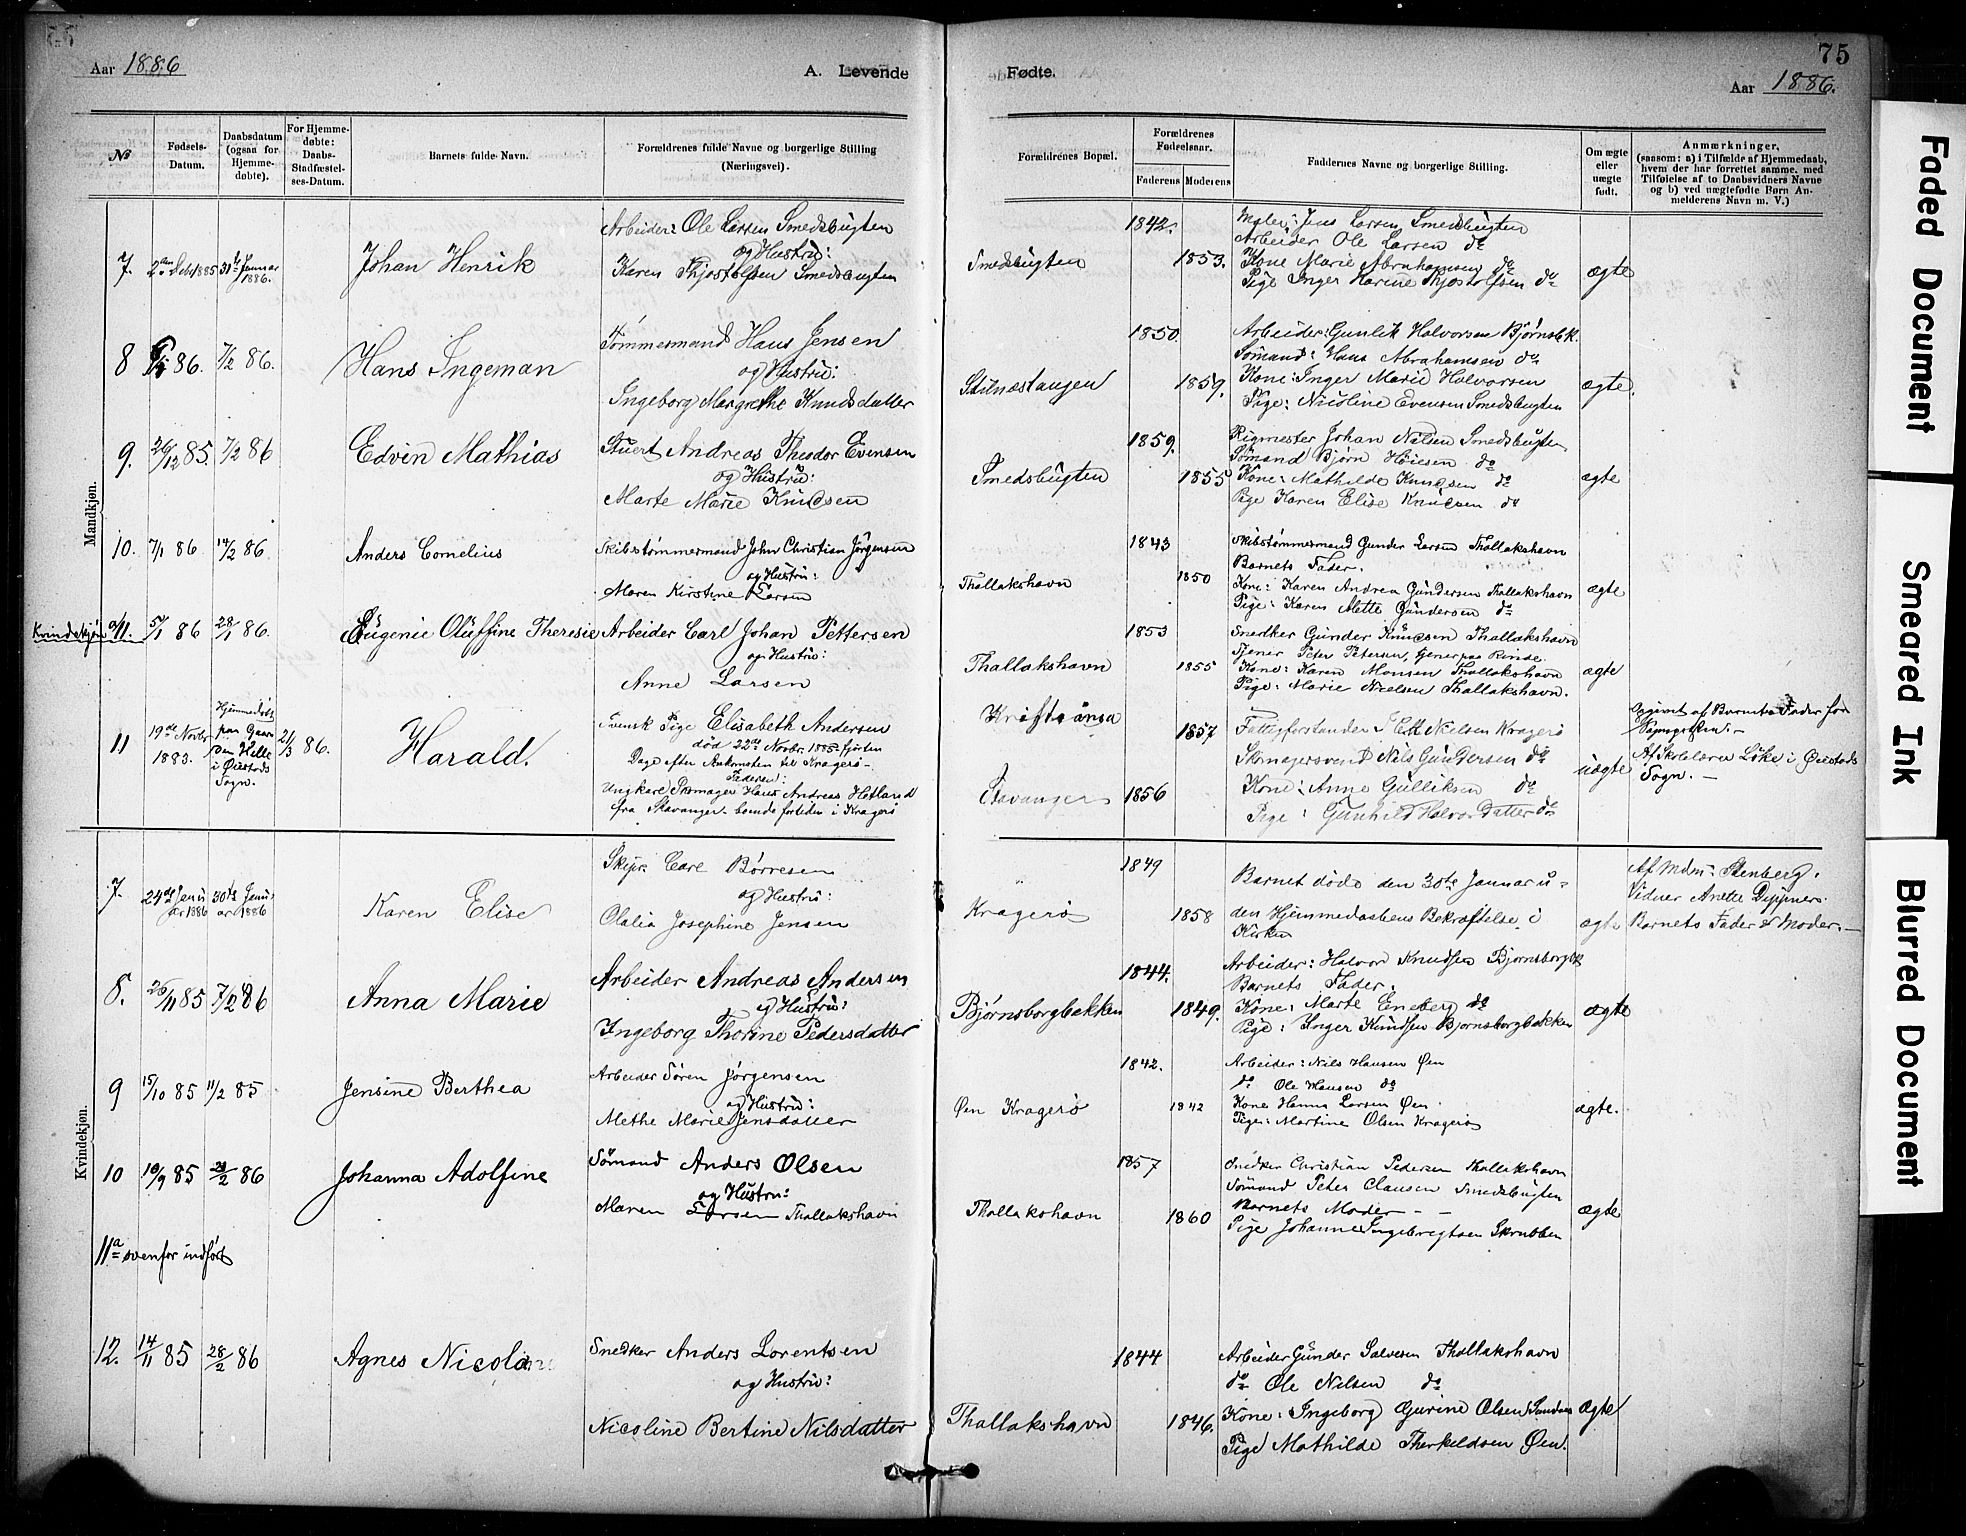 Aar 1886
A. Levende
Fødte.
75
Aar 1886.
№
Fødsels-Datum.
Daabsdatum (ogsaa for Hjemme-døbte).
For Hjemme-døbte: Daabs-Stadfæstel-ses-Datum.
Barnets fulde Navn.
Forældrenes fulde Navne og borgerlige Stilling (Næringsvei).
Forældrenes Bopæl.
Forældrenes Fødselsaar.
Faderens
Moderens
Faddernes Navne og borgerlige Stilling.
Om ægte eller uægte født.
Anmærkninger,
(saasom: a) i Tilfælde af Hjemmedaab, hvem der har forrettet samme, med Tilføielse af to Daabsvidners Navne og b) ved uægtefødte Børn Anmelderens Navn m. V.)
Mandkjøn.
7.
31te Januar 1886.
Johan Henrik
Arbeider: Ole Larsen Smedsbugten
og Hustru:
Karen Thjostolfsen Smedsbugten
Smedsbugten
1842.
1853.
Maler: Jens Larsen Smedsbugten
Arbeider Ole Larsen do
Kone Marie Abrahamsen do
Pige Inger Karine Thjostolfsen do
ægte
8
86.
7/2 86.
Hans Ingeman
Tømmermand Hans Jensen
og Hustru:
Ingeborg Margrethe Knudsdatter
Stilnæstangen
1850.
1859.
Arbeider: Gunlik Halvorsen Bjørnsbk.
Sømand: Hans Abrahamsen do
Kone: Inger Marie Halvorsen
Pige: Nicoline Evensen Smedsbugten
ægte.
9.
26/12 85.
7/2 86
Edvin Mathias
Stuert Andreas Theodor Evensen
og Hustru:
Marte Marie Knudsen
Smedsbugten
1859.
1855
Rigmester Johan Nielsen Smedsbugten
Sømand Bjørn Høiesen do
Kone: Mathilde Knudsen do
Pige Karen Elise Knudsen do
ægte
10.
7/1 86
14/2 86.
Anders Cornelius
Skibstømmermand John Christian Jørgensen
og Hustru:
Maren Kirstine Larsen
Thallakshavn
1843
1850
Skibstømmermand Gunder Larsen Thallakshavn
Barnets Fader.
Kone: Karen Andrea Gundersen Thallakshavn
Pige: Karen Mette Gundersen do
ægte
Kvindekjøn a/11.
5/1 86
28/1 86.
Eugenie Oluffine Theresie
Arbeider Carl Johan Pettersen
og Hustru:
Anne Larsen
Thallakshavn
1853
1855
Snedker Gunder Knudsen Thallakshavn
Tjener Peter Petersen, tjener paa Rinde.
Kone: Karen Monsen Thallakshavn
Pige: Marie Nielsen Thallakshavn.
ægte
11
19de Novbr 1883.
Hjemmedøbt paa Gaarden Helle i Øiestads Sogn.
21/3 86.
Harald.
Svensk Pige Elisabeth Andersen
død 22de Novbr. 1885 fjorten
Dage efter Ankomsten til Kragerø –
Faderen:
Ungkarl Possmager Hans Andreas Hetland
fra Stavanger boende fortiden i Kragerø
Stavanger
1857
1856
Fattigforstander Nielsen Kragerø
Skomagersvend Nils Gundersen do
Kone: Anne Gulliksen do
Pige: Gunhild Halvordatter do
uægte
Opgivet af Barnets Fader før
Af Skolelærer Løke i Øiestads
Sogn. –
Kvindekjøn.
7.
24de Januar 1886
30te Januar 1886
Karen Elise
Skipr. Carl Børresen
og Hustru:
Olalia Josephine Jensen
Kragerø
1849
1858
Barnet døde den 30te Januar u-
den Hjemmedaabens Bekræftelse i
Kirken
ægte
Af Mdm: Stenberg.
Vidner Anette
Barnets Fader & Moder. –
8.
26/11 85
7/2 86
Anna Marie
Arbeider Andreas Andersen
og Hustru:
Ingeborg Thorine Pedersdatter
Bjørnsborgbakken
1844.
1849.
Arbeider: Halvor Knudsen Bjørnsborgbk
Barnets Fader.
Kone: Marte Eneberg do
Pige: Inger Knudsen Bjørnsborgbakken
ægte
9
15/10 85
11/2 85
Jensine Berthea
Arbeider Søren Jørgensen
og Hustru:
Methe Marie Jensdatter
Øen Kragerø
1842.
1842
Arbeider: Nils Hansen Øen
do Ole Hansen do
Kone Hanna Larsen Øen.
Pige: Martine Olsen Kragerø
ægte.
10
10/9 85
21/2 86
Johanna Adolfine
Sømand Anders Olsen
og Hustru:
Maren Larsen Thallakshavn
Thallakshavn
1857
1860
Snedker Christian Pedersen Thallakshavn
Sømand Peter Clausen Smedsbugten
Barnets Moder - -
Pige Johanne Ingebregtsen Skrubben
ægte
11a ovenfor indført
12.
14/11 85
28/2 86
Agnes Nicoline
Snedker Anders Lorentsen
og Hustru:
Nicoline Bertine Nilsdatter
Thallakshavn
1844
1846.
Arbeider Gunder Salvesen Thallakshavn
do Ole Nilsen do
Kone: Ingeborg Gurine Olsen
Pige Mathilde Therkeldsen Øen.
ægte
Faded Document
Smeared Ink
Blurred Document